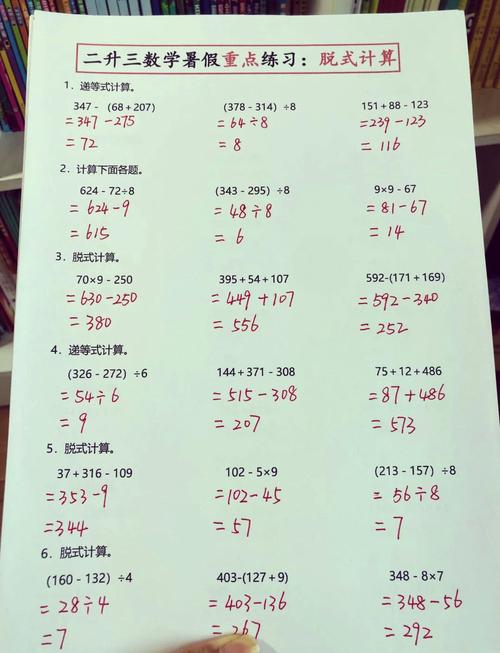 二升三数学暑假重点练习：脱式计算
1．递等式计算。
347 -（68 + 207） （378 - 314）÷8 151 + 88 - 123
=347-275 =64÷8 =239-123
=72 =8 =116
2．计算下面各题。
624 - 72÷8 （343 - 295）÷8 9×9 - 67
=624-9 =48÷8 =81-67
=615 =6 =14
3．脱式计算。
70×9 - 250 395 + 54 + 107 592-(171 + 169)
=630-250 =449+107 =592-340
=380 =556 =252
4．递等式计算。
（326 - 272）÷6 144 + 371 - 308 75 + 12 + 486
=54÷6 =515-308 =87+486
=9 =207 =573
5．脱式计算。
37 + 316 - 109 102 - 5×9 （213 - 157）÷8
=353-9 =102-45 =56÷8
=344 =57 =7
6．脱式计算。
（160 - 132）÷4 403-(127 + 9) 348 - 8×7
=28÷4 =403-136 =348-56
=7 =267 =292